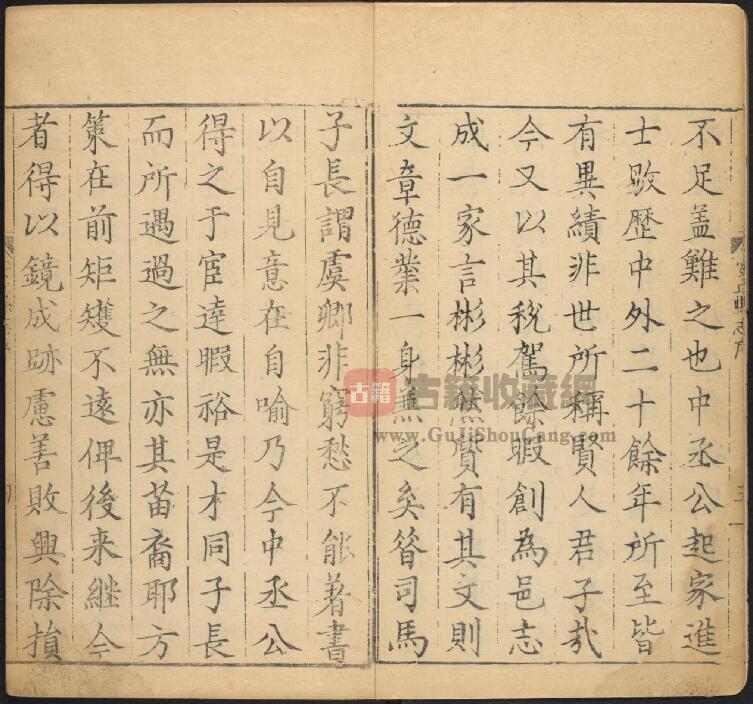 不足盖難之也中丞公起家進
士敭歷中外二十餘年所至皆
有異績非世所稱賢人君子哉
今又以其稅駕餘暇創為邑志
成一家言彬彬然質有其文則
文章德業一身兼之矣昝司馬
子長謂虞卿非窮愁不能著書
以自見意在自喻乃今中丞公
得之于宦達暇裕是才同子長
而所遇過之無亦其苗裔耶方
策在前矩矱不遠俾後来継今
者得以鏡成跡慮善敗興除損
三
古籍
古籍收藏網
www.GuJiShouCang.com